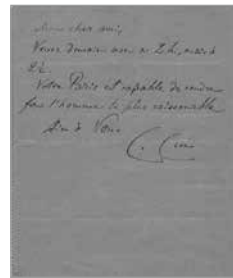 Mon cher ami,
Venez demain non à 2 h, mais à
2½.
Votre Paris est capable de rendre
fou l'homme le plus raisonnable
à Vous
C.